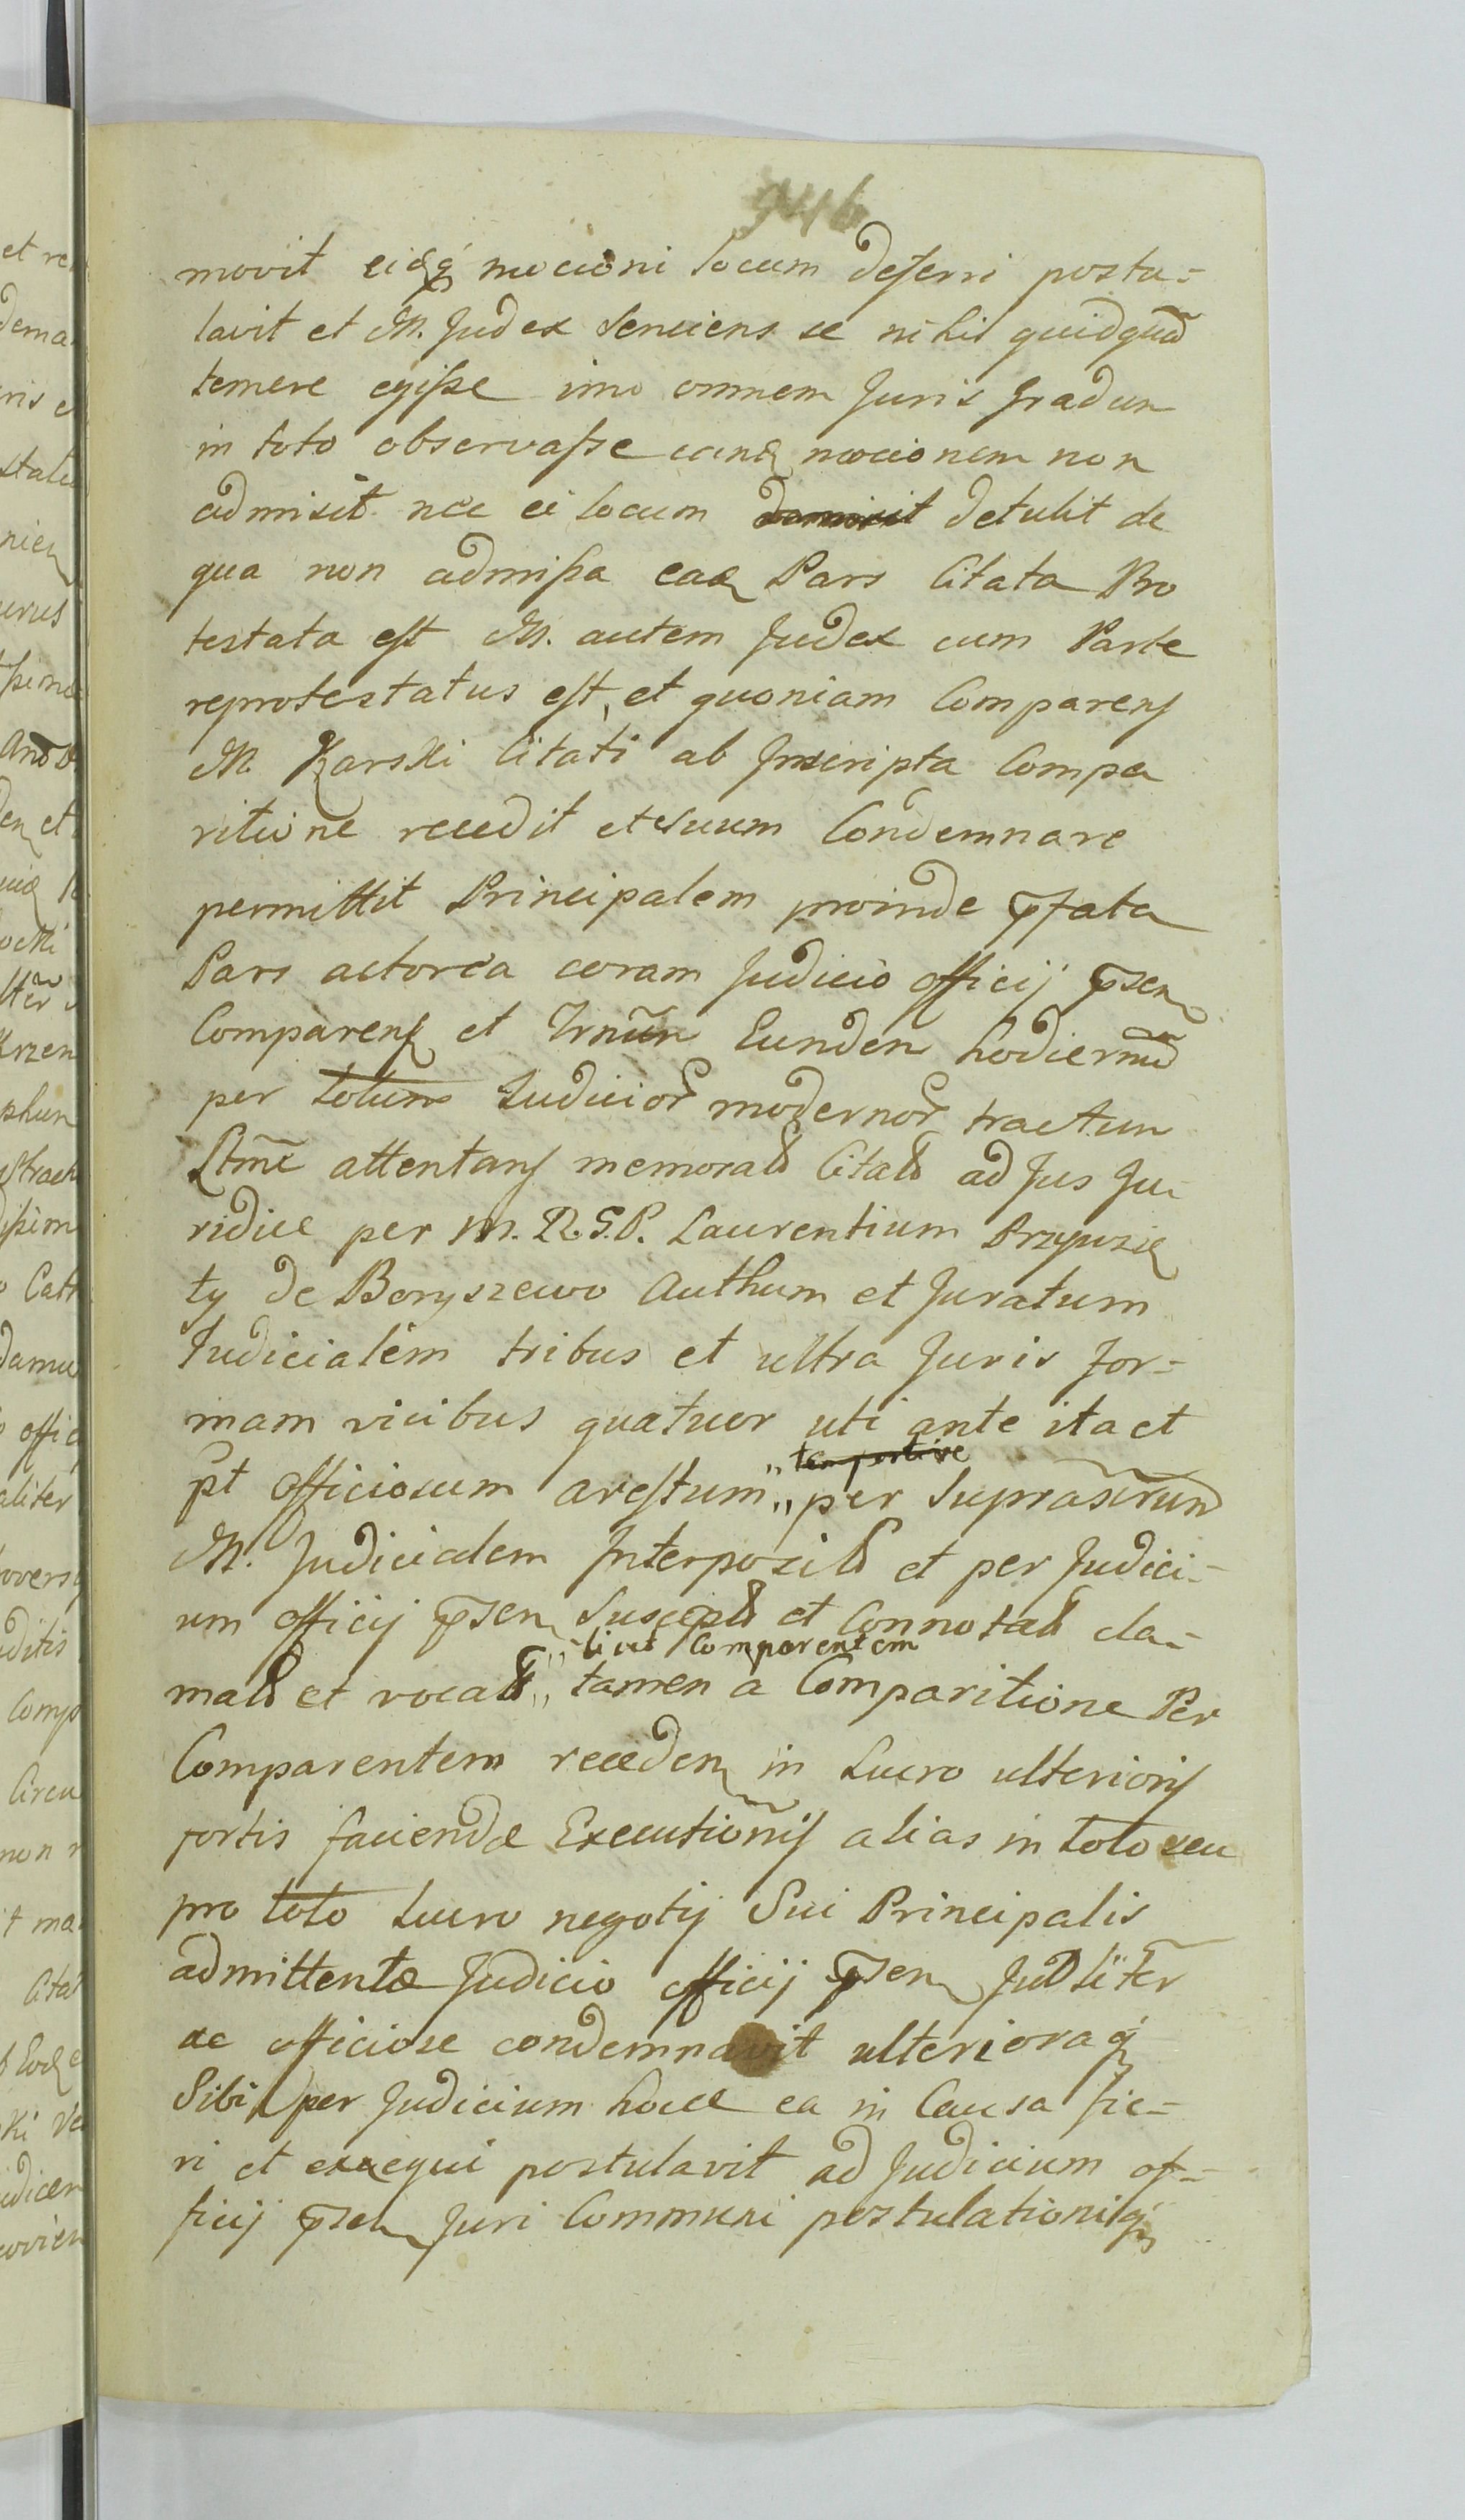 946
movit eidq̃ mocioni locum deferri postu-
lavit et M. Judex senciens se nihil quidquã
temere egisse imo omnem Juris gradum
in toto observasse eand mocionem non
admisit nec ei locum detulit de
qua non admissa ead Pars Citata Pro
testata est M. autem Judex cum Parte
reprotestatus est, et quoniam Comparens
M. Karski Citati ab Inscripta Compa
ritione recedit et suum Condemnare
permittit Principalem proinde p̃fata
Pars actorea coram Judicio officij p̃sen
Comparens et Trnum Eundem hodiernũ
per totum Judicior modernor tractum
Ltmẽ attentans memorat Citat ad Jus Ju-
ridice per M. R. G. P. Laurentium Przyuzie
ty de Boryszewo Authum et Juratum
Judicialem tribus et ultra Juris for-
mam vicibus quatuor uti ante ita et
pt officiosum arestum „ tempestive „ per Suprascrum
M. Judicialem Interposit et per Judici-
um officij p̃sen suscept et Connotat cla-
mat et vocat „ licet Comparentem „ tamen a Comparitione Per
Comparentem receden in Lucro ulterioris
fortis faciendæ Executionis alias in toto seu
pro toto Lucro negotij Sui Principalis
admittente Judicio officij p̃sen Judliter
ac officiose condemnavit ulterioraq̃
Sibi per Judicium hocce ea in Causa fie-
ri et exequi postulavit ad Judicium of-
ficij p̃sen Juri Communi postulationiq̃